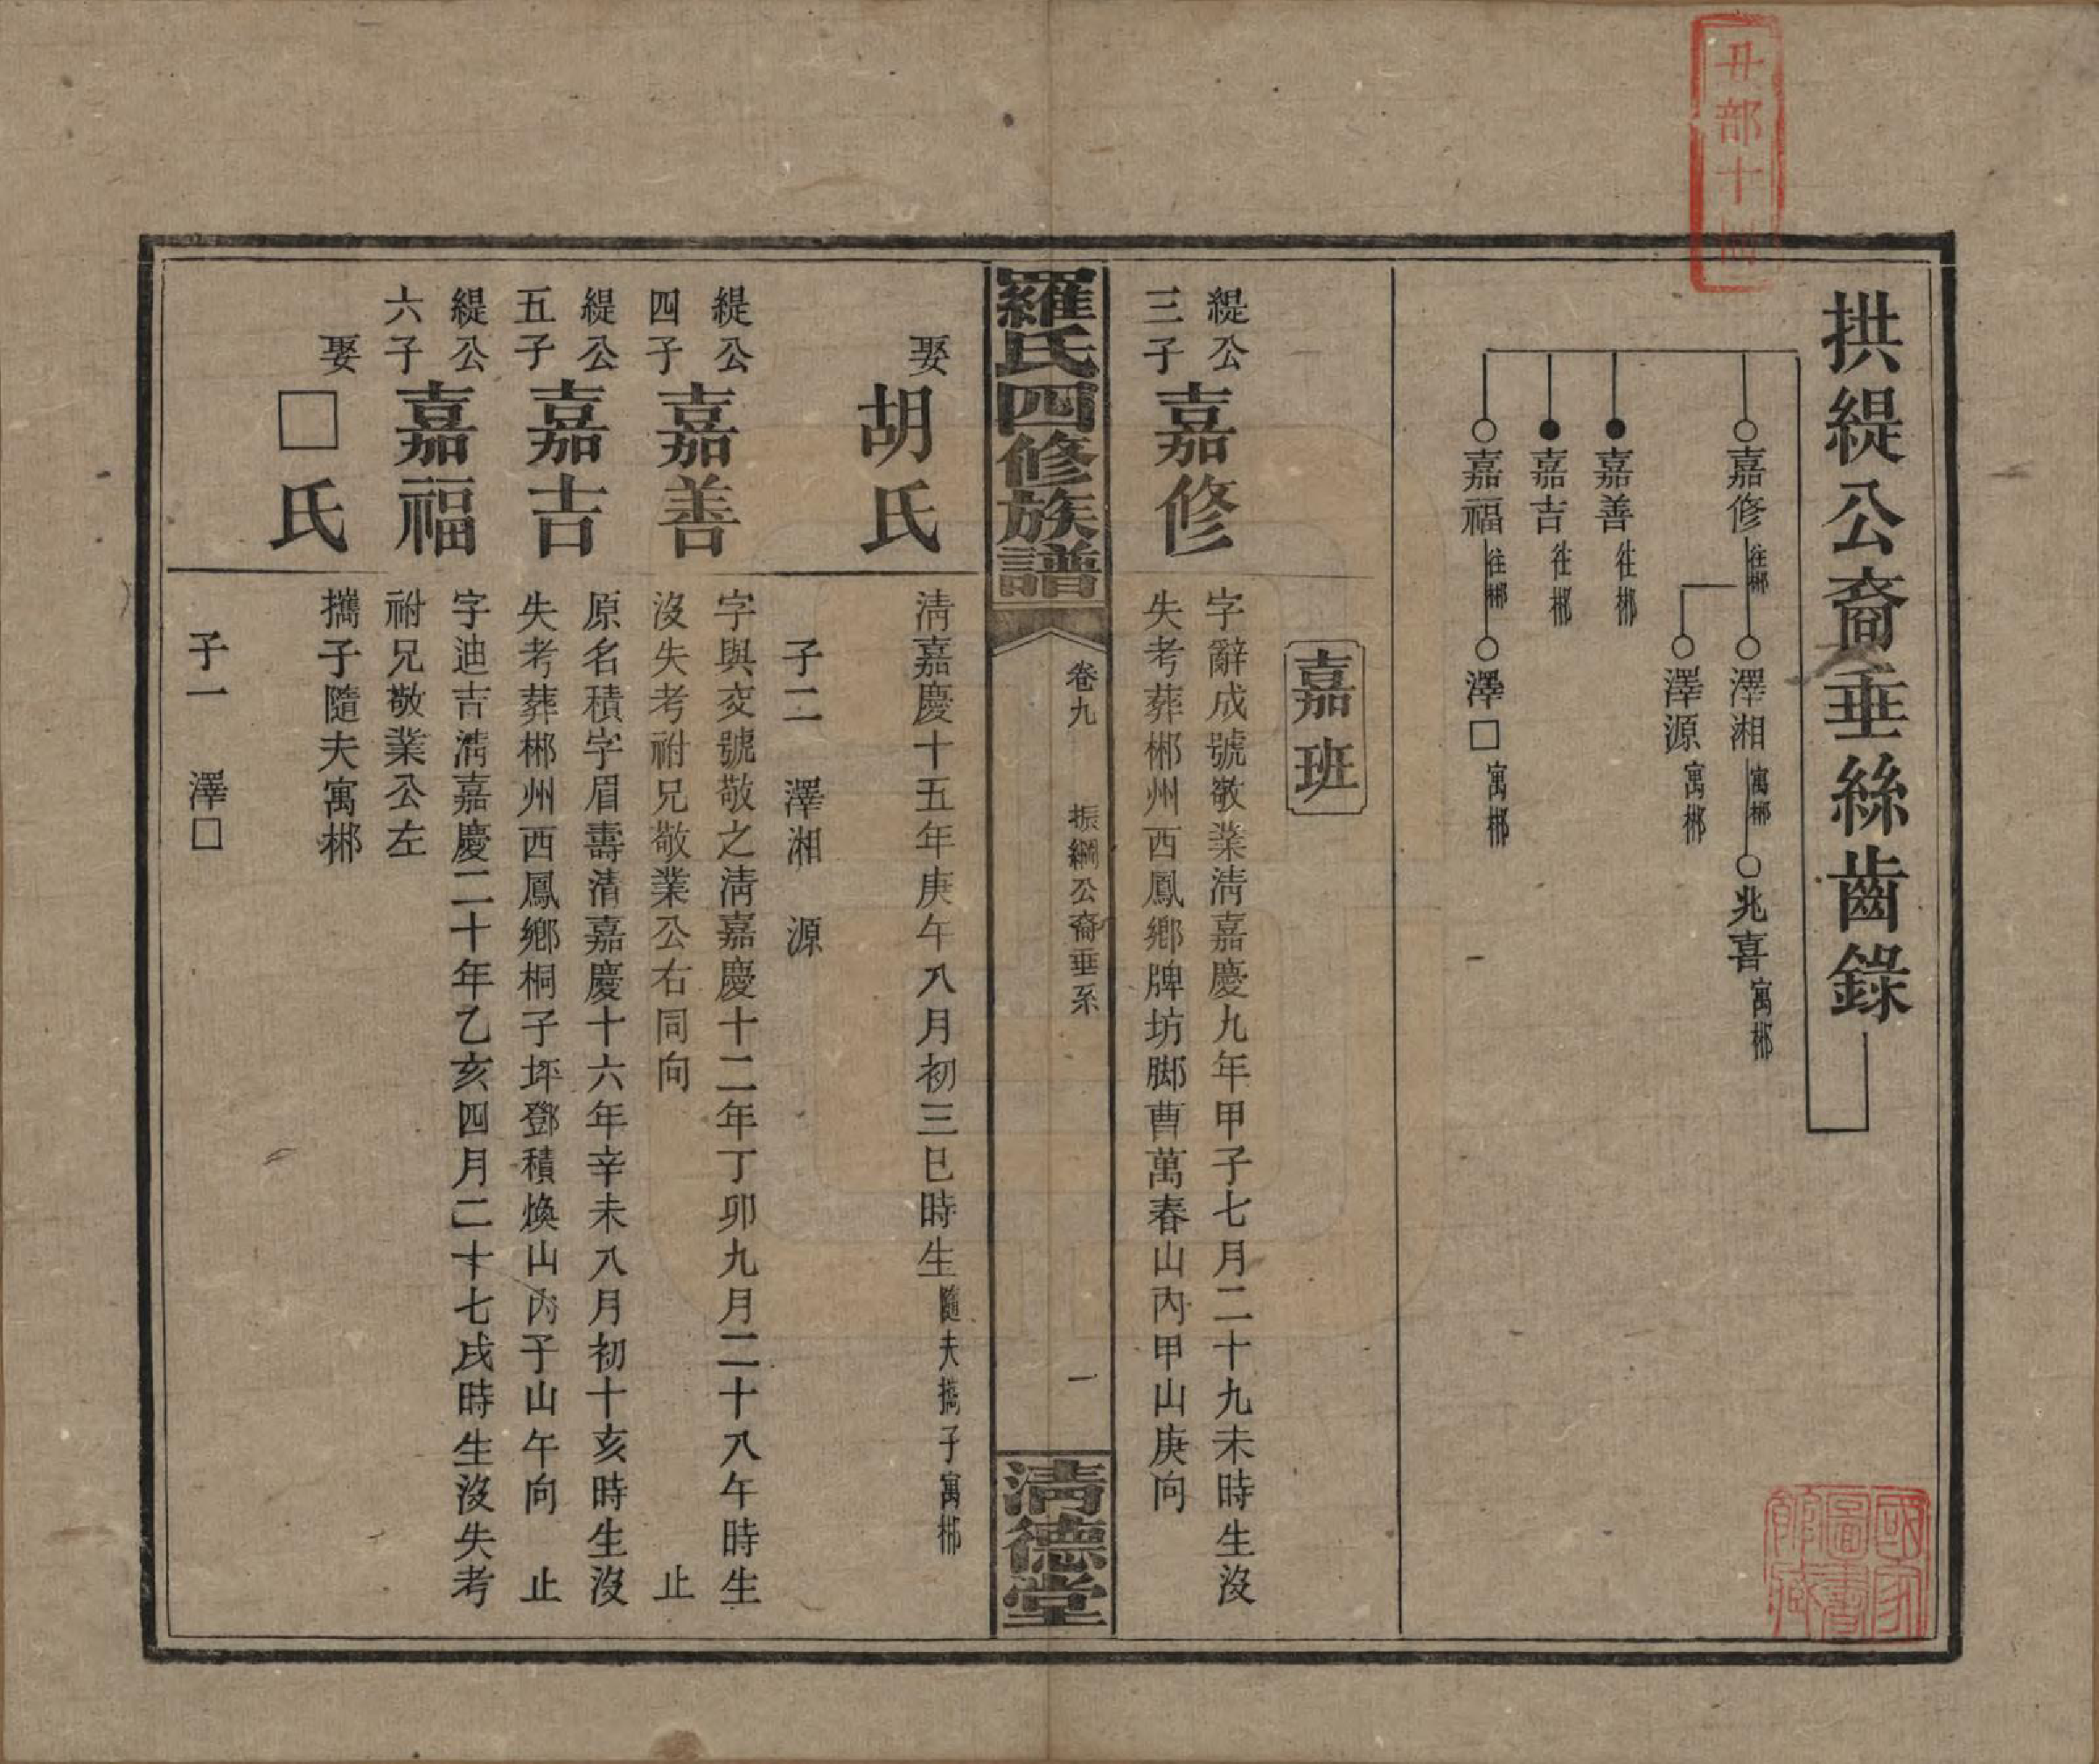 丑部十
拱緹公裔垂絲齒錄
嘉修往郴
澤湘寓郴
兆喜寓郴
澤源寓郴
嘉善往郴
嘉吉往郴
嘉福往郴
澤□寓郴
國家圖書館藏
嘉班
緹公三子
嘉修
字辭成號敬業淸嘉慶九年甲子七月二十九未時生沒
失考葬郴州西鳳鄉牌坊脚曹萬春山內甲山庚向
羅氏四修族譜
卷九
振綱公裔垂系
一
淸德堂
娶胡氏
淸嘉慶十五年庚午八月初三巳時生隨夫攜子寓郴
子二 澤湘 源
緹公四子
嘉善
字與交號敬之淸嘉慶十二年丁卯九月二十八午時生
沒失考祔兄敬業公右同向 止
緹公五子
嘉吉
原名積字眉壽清嘉慶十六年辛未八月初十亥時生沒
失考葬郴州西鳳鄉桐子坪鄧積煥山內子山午向 止
緹公六子
嘉福
字迪吉淸嘉慶二十年乙亥四月二十七戌時生沒失考
祔兄敬業公左
娶□氏
攜子隨夫寓郴
子一 澤□